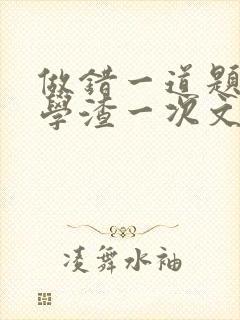 做錯一道題
學渣一次文
凌舞水袖